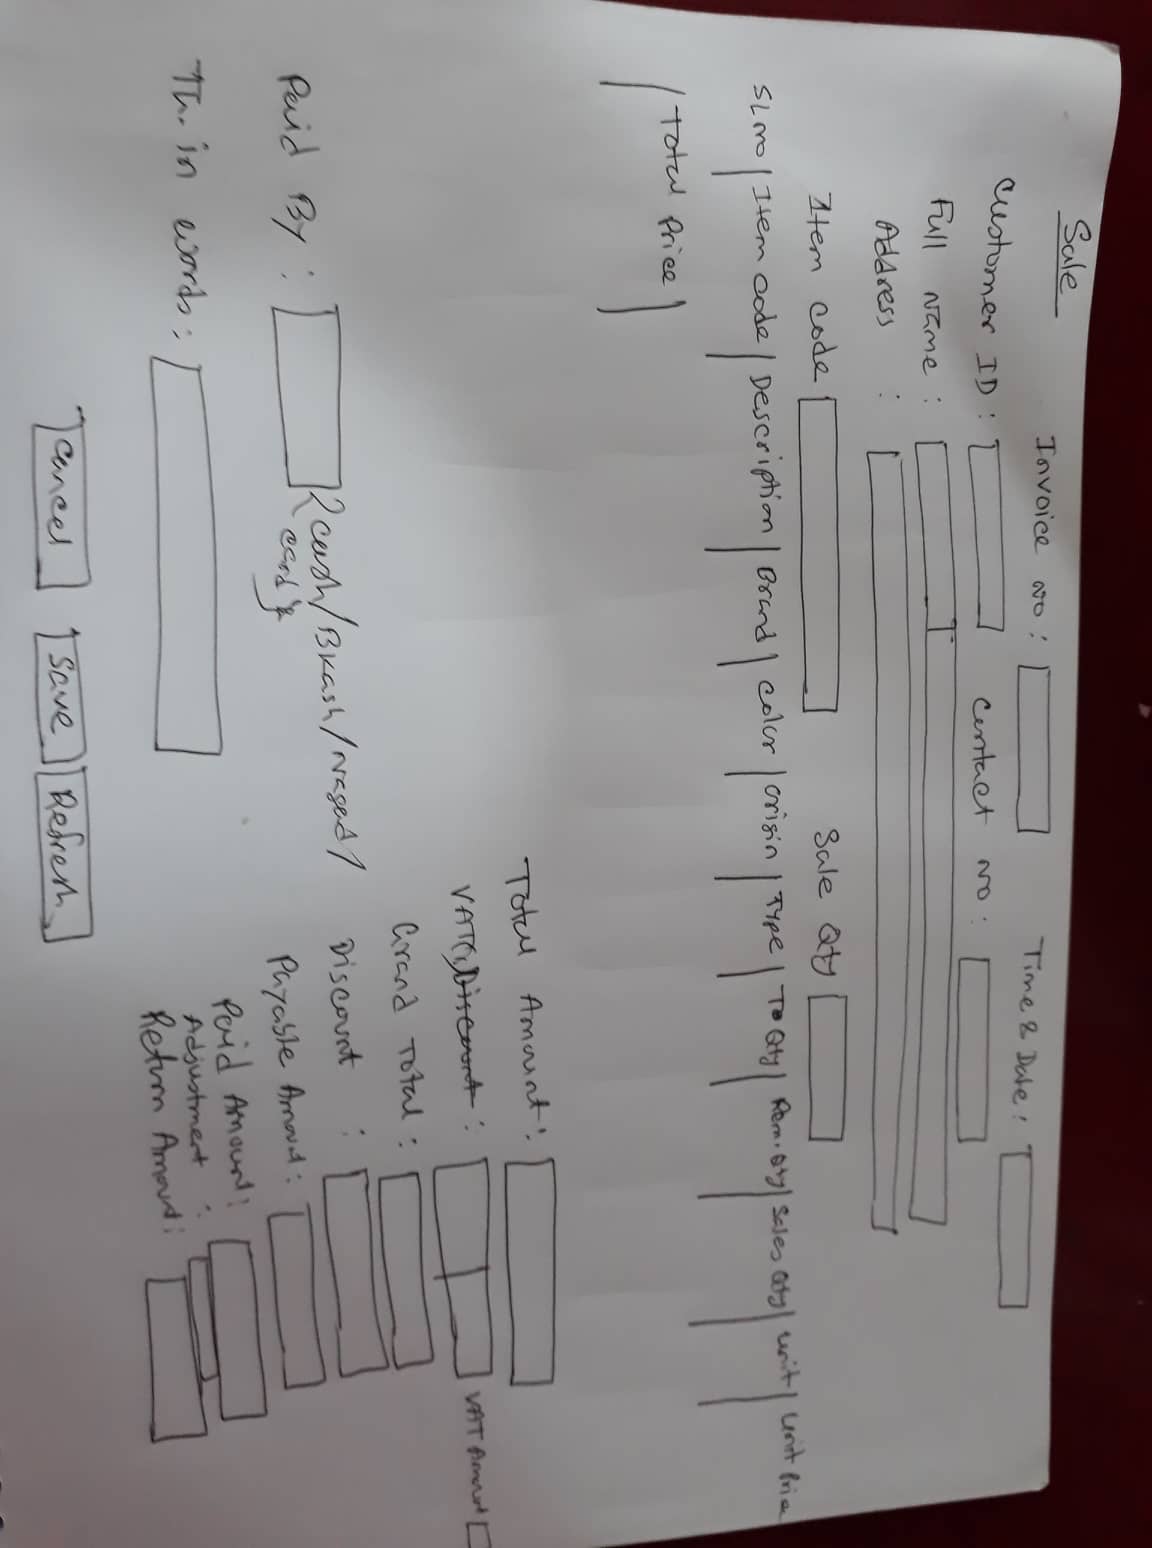 Sale
Invoice No: Time & Date:
Customer ID: Contact No:
Full Name:
Address :
Item code Sale Qty
SL no | Item code | Description | Brand | Color | Origin | Type | To Qty | Rem. Qty | Sales Qty | Unit | Unit Price
| Total Price |
Total Amount:
VAT : VAT Amount
Grand Total:
Discount :
Paid By: {Cash/Bkash/Nagad/
Card}
Payable Amount:
Paid Amount:
Adjustment :
Return Amount:
in words:
Cancel Save Refresh